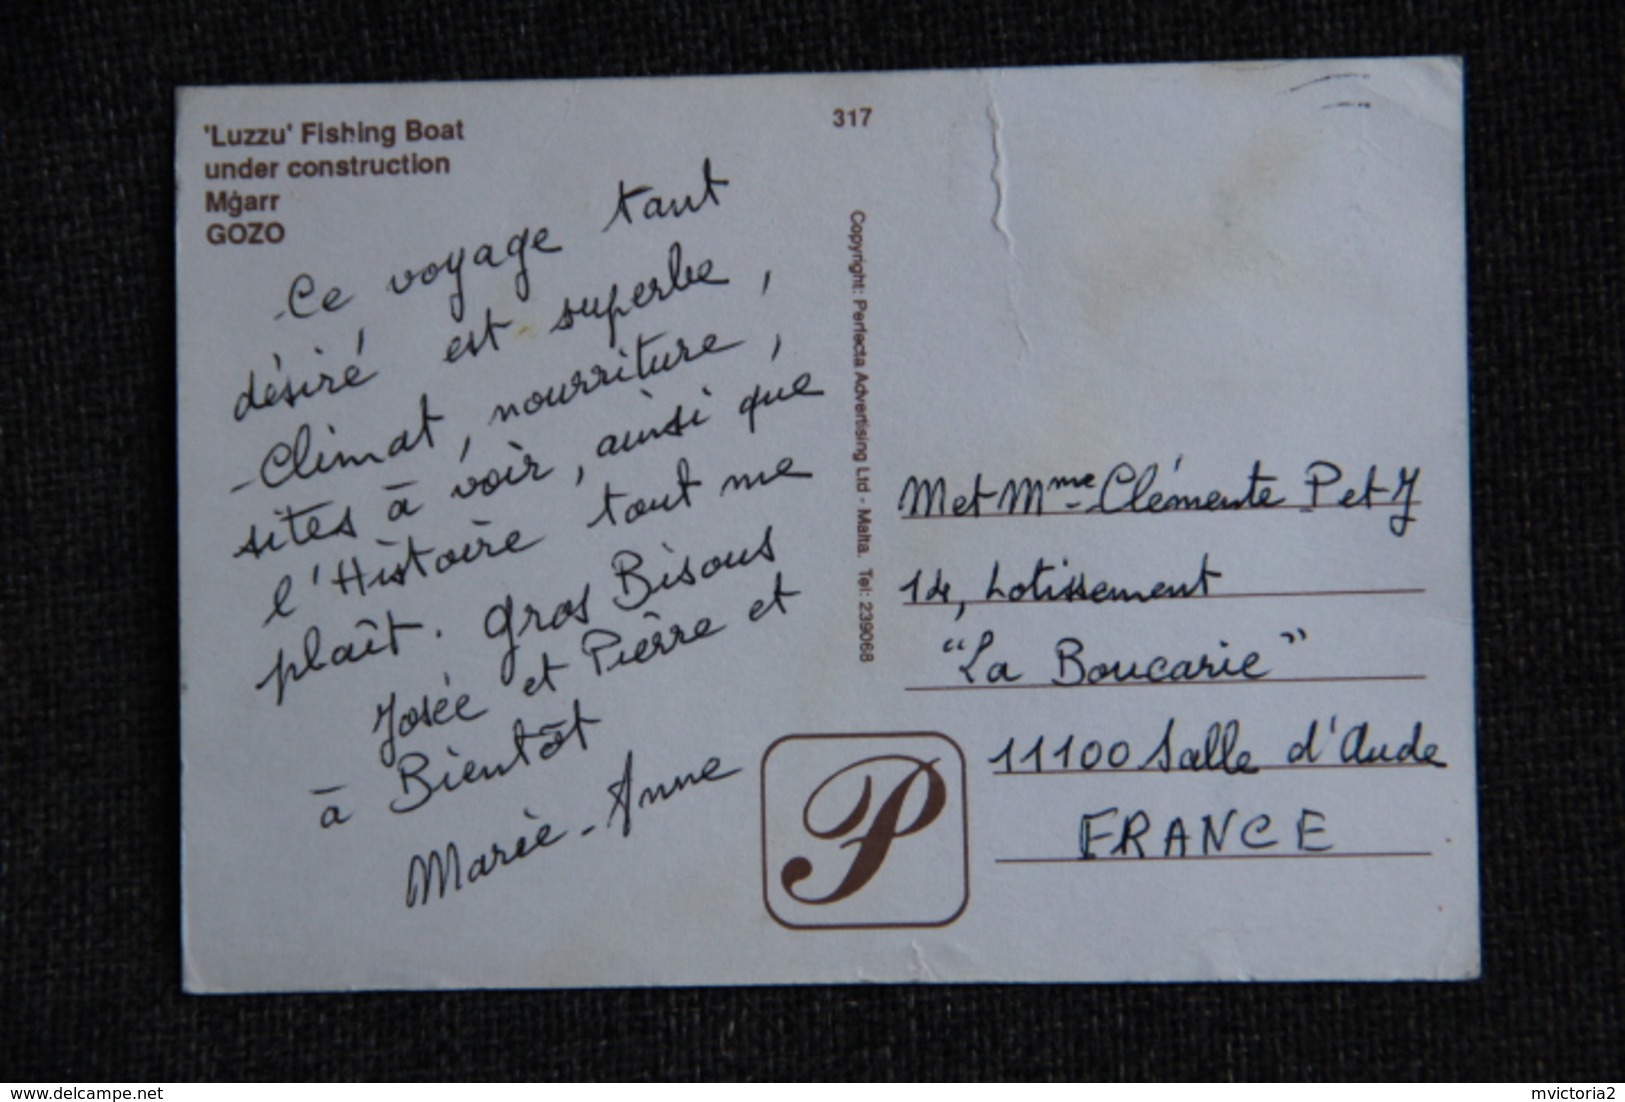 'Luzzu' Fishing Boat
under construction
Mġarr
GOZO
317
Ce voyage tant
désiré est superbe,
Climat, nourriture,
sites à voir, ainsi que
l'Histoire tout me
plaît. Gros Bisous
Josée et Pierre et
à Bientôt
Marie-Anne
Copyright: Perfecta Advertising Ltd - Malta. Tel: 239068
M et Mme Clémente P et J
14, Lotissement
"La Boucarie"
11100 Salle d'Aude
FRANCE
P
delcampe.net
mvictoria2